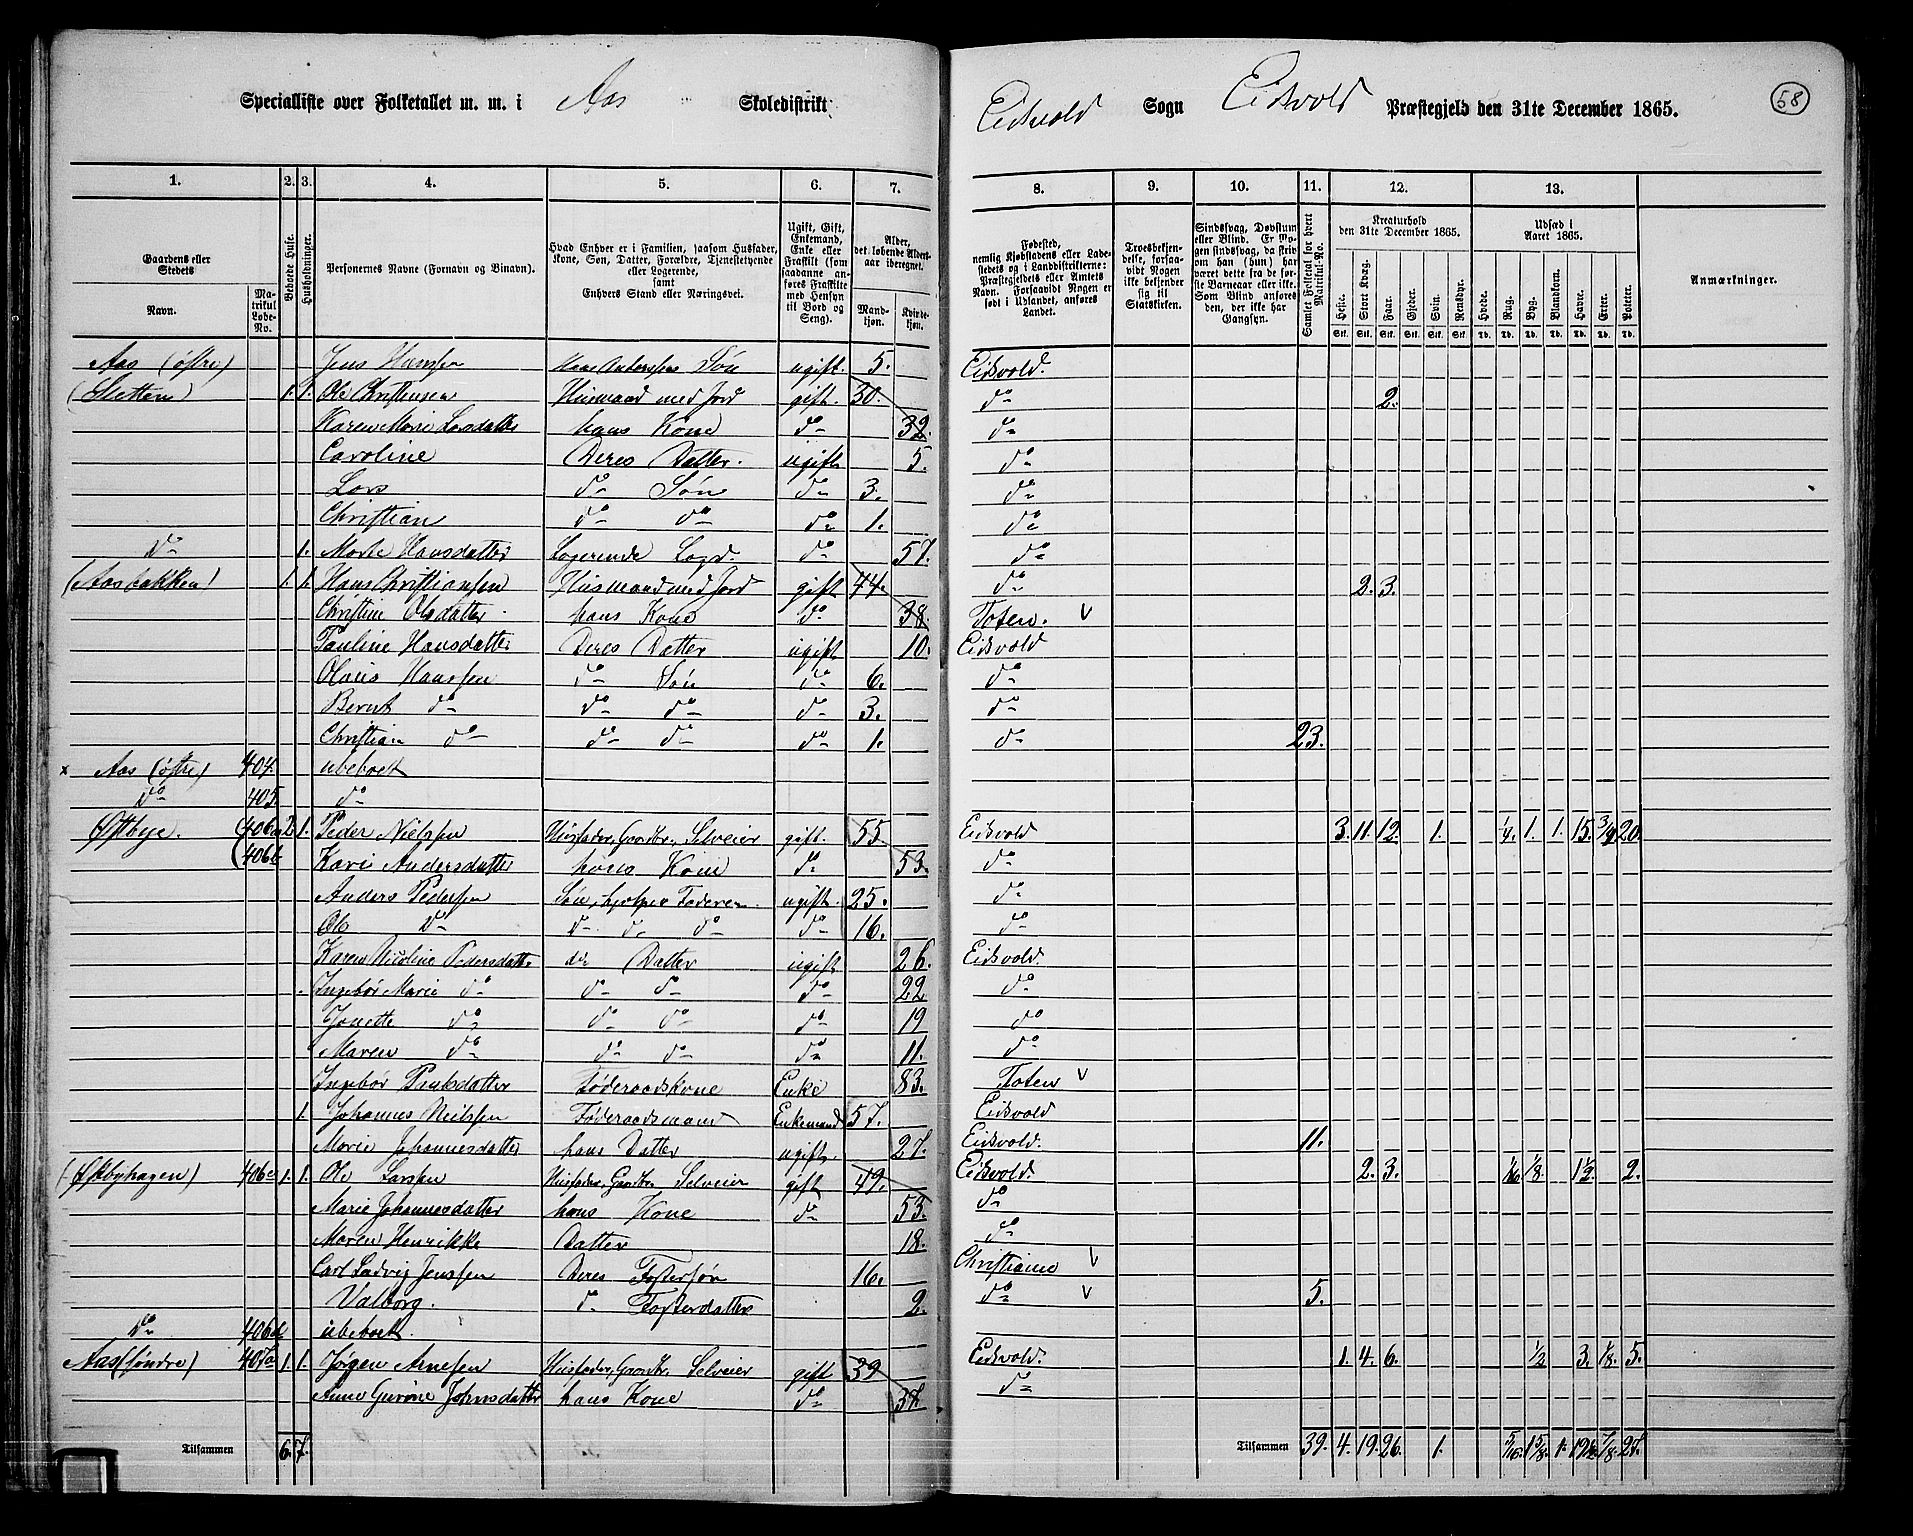 Specialliste over Folketallet m. m. i Aas Skoledistrikt
Eidsvold Sogn Eidsvold Præstegjeld den 31te December 1865. 58
1. 2. 3. 4. 5. 6. 7. 8. 9. 10. 11. 12. 13.
Gaardens eller Stedets
Navn.
Matrikul Løbe-No.
Beboede Huse.
Husholdninger.
Personernes Navne (Fornavn og Binavn).
Hvad Enhver er i Familien, saasom Husfader, Kone, Søn, Datter, Forældre, Tjenestetyende eller Logerende,
samt
Enhvers Stand eller Næringsvei.
Ugift, Gift, Enkemand, Enke eller Fraskilt (som saadanne anføres Fraskilte med Hensyn til Bord og Seng).
Alder, det løbende Aldersaar iberegnet.
Mandkjøn. Kvindekjøn.
Fødested,
nemlig Kjøbstadens eller Ladestedets og i Landdistrikterne: Præstegjeldets eller Amtets Navn. Forsaavidt Nogen er født i Udlandet, anføres Landet.
Troesbekjendelse, forsaavidt Nogen ikke bekjender sig til Statskirken.
Sindssvag, Døvstum eller Blind. Er Nogen sindssvag, da skrives hvorvidt han (hun) har været dette fra de første Barneaar eller ikke. Som Blind anføres den, der ikke har Gangsyn.
Samlet Folketal for hvert Matrikul-No.
Kreaturhold
den 31te December 1865.
Heste. Stort Kvæg. Faar. Gjeder. Svin. Rensdyr.
Stk. Stk. Stk. Stk. Stk. Stk.
Udsæd i
Aaret 1865.
Hvede. Rug. Byg. Blandkorn. Havre. Erter. Poteter.
Td. Td. Td. Td. Td. Td. Td.
Anmærkninger.
Aas (østre) Jens Hansen Hans Anderssens Søn ugift. 5. Eidsvold.
(Sletten) 1. 1. Ole Christensen Husmand med Jord gift. 30. do 2.
Karen Marie Larsdatter hans Kone do 32. do
Caroline Deres Datter. ugift 5. do
Lars do Søn do 3. do
Christian do do do 1. do
do 1. Marte Hansdatter Logerende Lægd. do 57. do
(Aasbakken) 1. 1. Hans Christiansen Husmand med Jord gift 44. do 2. 3.
Christine Olsdatter. hans Kone do 38. Toten. V
Pauline Hansdatter Deres Datter ugift 10. Eidsvold
Olaus Hanssen do Søn do 6. do
Bernt do do do do 3. do
Christian do do do do 1. do 23.
x Aas (østre) 404. ubeboet
do 405. do
Østbye. (406a 2. 1. Peder Nielsen Husfader, Gaardbr, Selveier gift. 55. Eidsvold 3. 11. 12. 1. 1/4. 1. 1. 15. 3/4 20.
(406b Kari Andersdatter hans Kone do 53. do
Anders Pedersen Søn, hjelper Faderen ugift. 25. do
Ole do do do do do 16. do
Karen Nicoline Pedersdatter do Datter ugift 26. Eidsvold.
Ingebor Marie do do do do 22 do
Jonette do do do do 19 do
Maren do do do do 11. do
Ingebor Poulsdatter Føderaadskone Enke 83. Toten V
1. Johannes Nielsen Føderaadsmand Enkemand 57. Eidsvold
Marie Johannesdatter hans Datter ugift. 27. Eidsvold. 11.
(Østbyhagen) 406c 1. 1. Ole Larsen Husfader, Gaardbr. Selveier gift 49. Eidsvold. 2. 3. 1/16. 1/8. 1 1/2. 2.
Marie Johannesdatter hans Kone do 53. do
Maren Henrikke Datter 18. do
Carl Ludvig Jenssen Deres Fostersøn 16. Christiania V
Valborg. do Fosterdatter 2. do V 5.
do 406d ubeboet.
Aas (søndre) 407a 1. 1. Jørgen Arnesen Husfader, Gaardbr, Selveier gift 39 Eidsvold. 1. 4. 6. 1/2 3. 1/8. 5.
Anne Gurine Johnsdatter hans Kone do 37. do
Tilsammen 6. 7.
Tilsammen 39. 4. 19. 26. 1. 5/16. 1 5/8. 1. 19 1/2 7/8. 27.